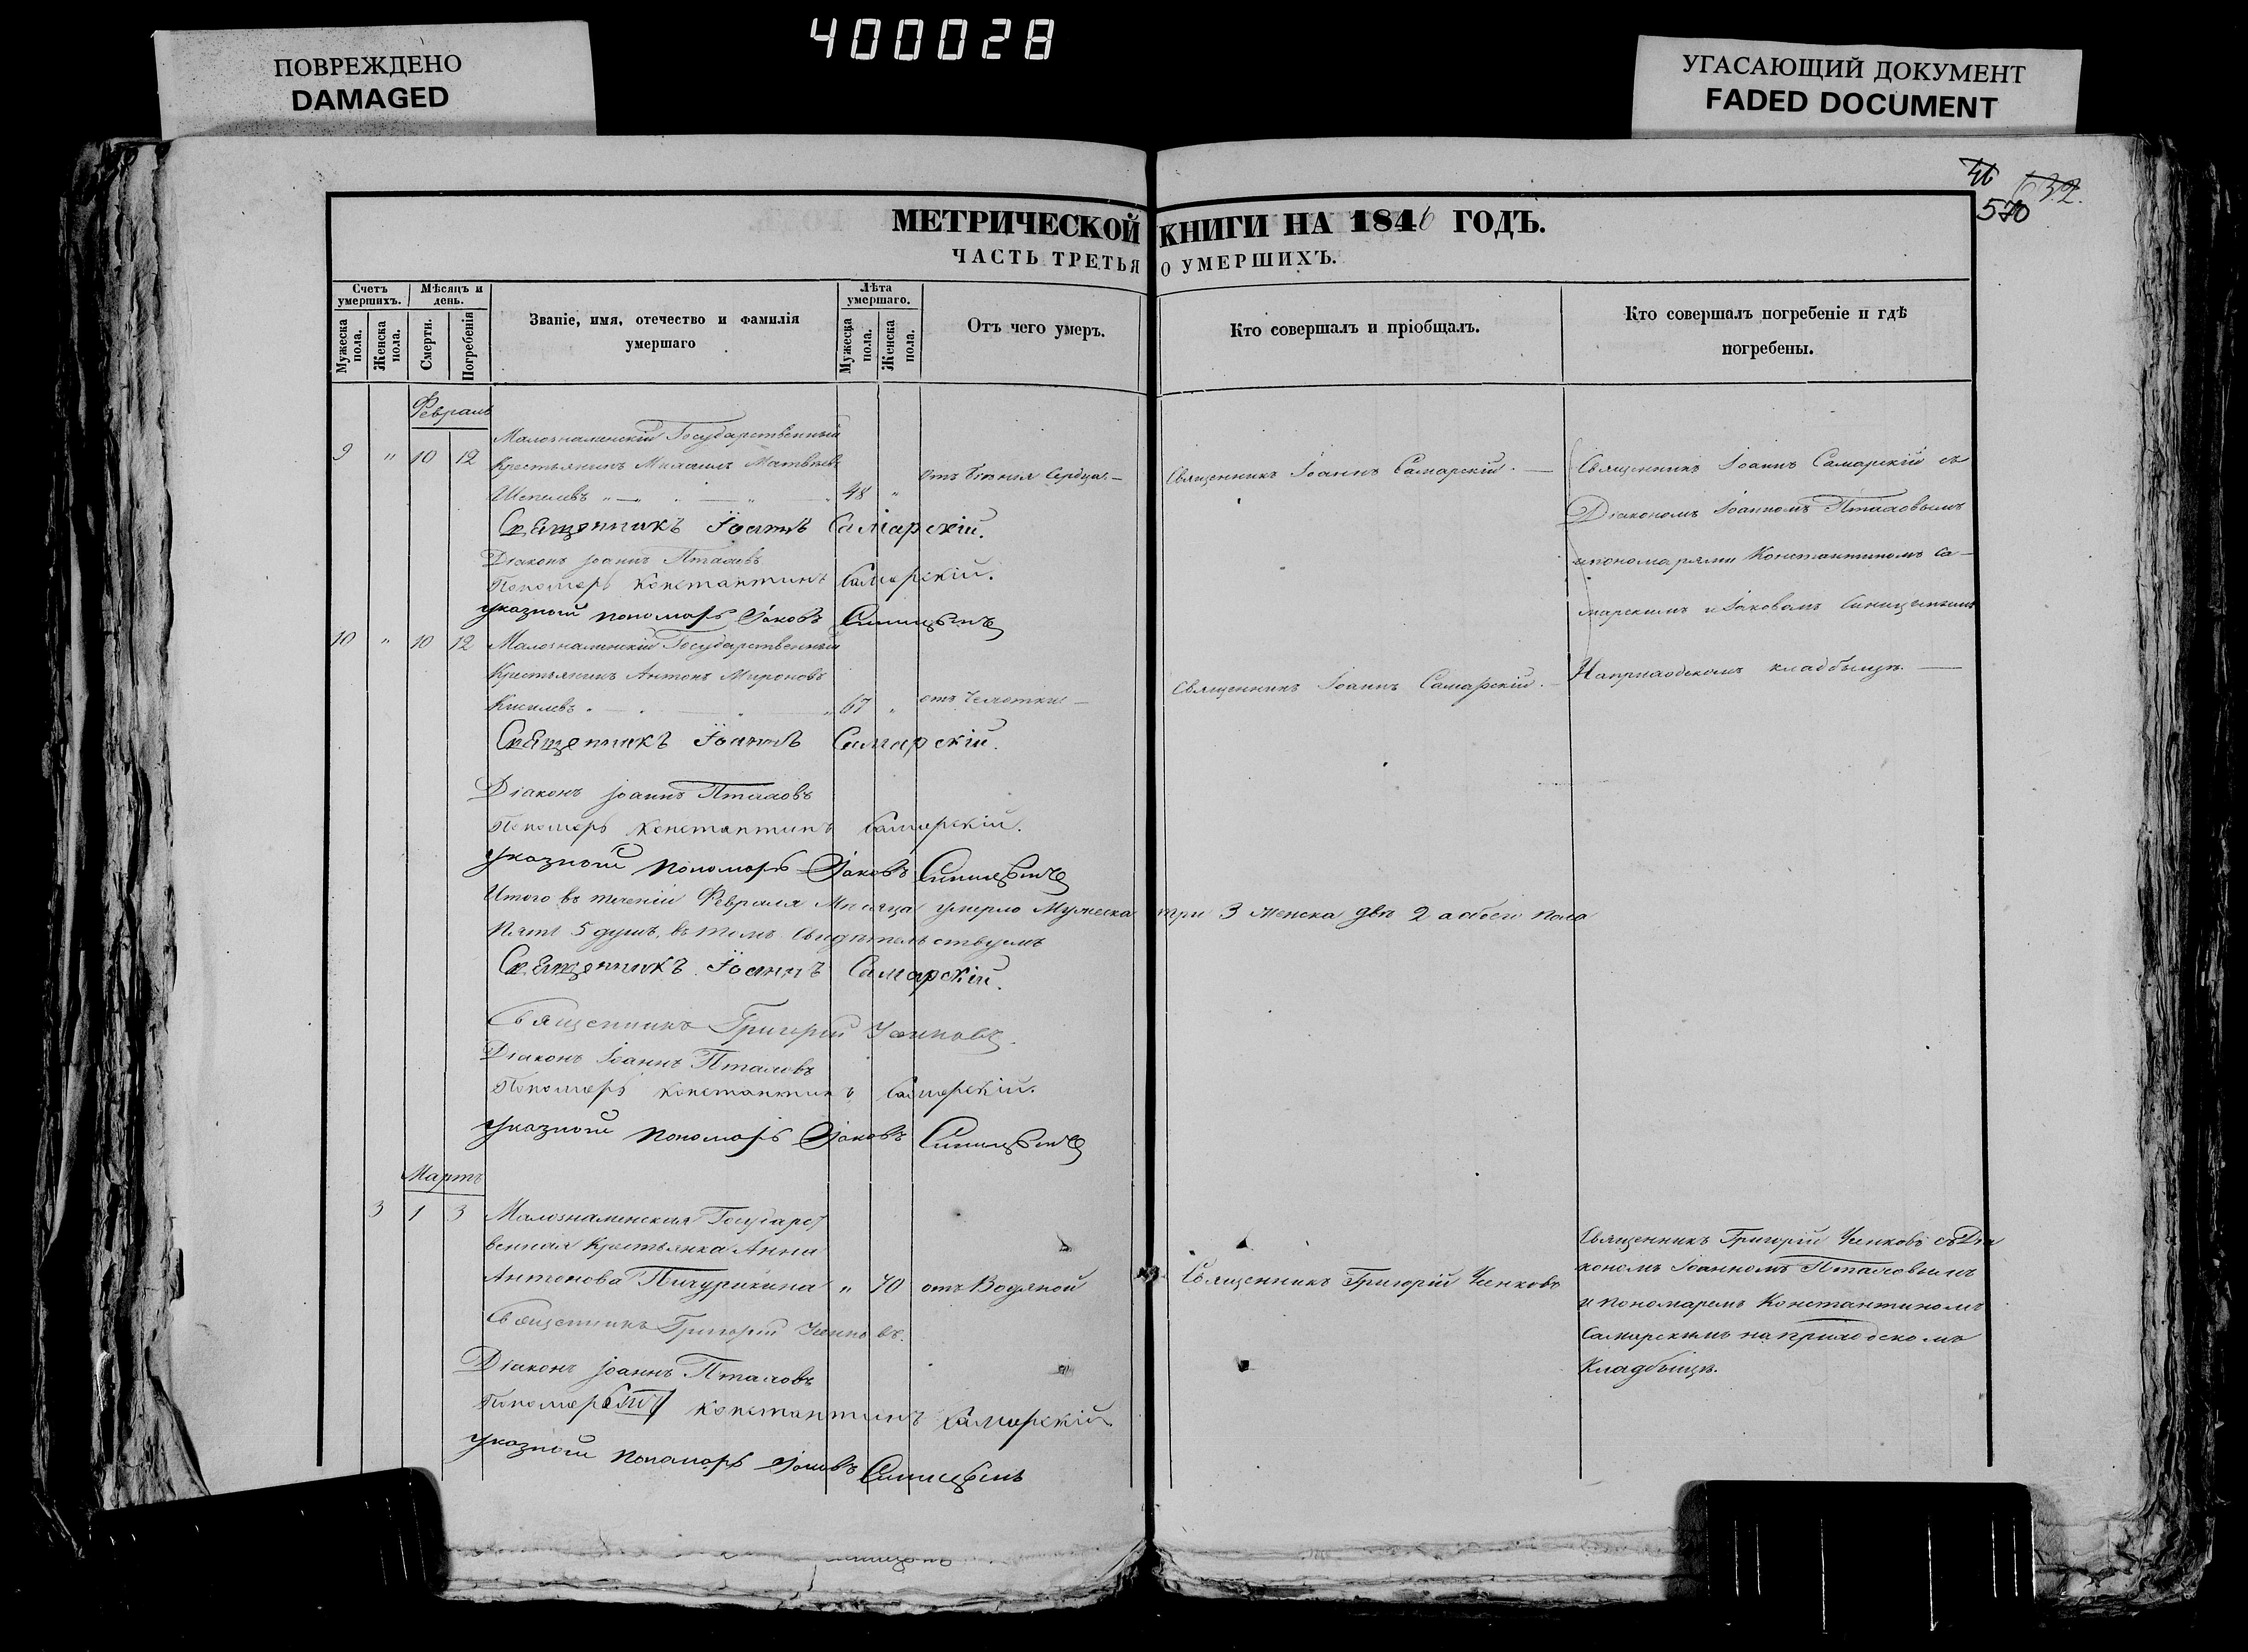 400028
ПОВРЕЖДЕНО
DAMAGED
УГАСАЮЩИЙ ДОКУМЕНТ
FADED DOCUMENT
46 632.
570
МЕТРИЧЕСКОЙ КНИГИ НА 1846 ГОДЪ.
ЧАСТЬ ТРЕТЬЯ О УМЕРШИХЪ.
Счетъ умершихъ.
Мѣсяцъ и день.
Званіе, имя, отечество и фамилія умершаго
Лѣта умершаго.
Отъ чего умеръ.
Кто совершалъ и пріобщалъ.
Кто совершалъ погребеніе и гдѣ погребены.
Мужеска пола.
Женска пола.
Смерти.
Погребенія
Мужеска пола.
Женска пола.
Февраль
9 " 10 12 Малознаменскій Государственный
Крестьянинъ Михаилъ Матвѣевъ
Шепелевъ 48 " Отъ біенія Сердца.
Священникъ Іоаннъ Самарскій.
Священникъ Іоаннъ Самарскій съ
Діакономъ Іоанномъ Птаховымъ
и пономарями Константиномъ Са-
марскимъ и Іаковомъ Синицынымъ
На приходскомъ кладбищѣ.
Священникъ Іоаннъ Самарскій.
Діаконъ Іоаннъ Птаховъ
Пономарь Константинъ Самарскій.
указной пономарь Іаковъ Синицынъ
10 " 10 12 Малознаменскій Государственный
Крестьянинъ Антонъ Мироновъ
Киселевъ 67 " отъ Чахотки
Священникъ Іоаннъ Самарскій.
Священникъ Іоаннъ Самарскій.
Діаконъ Іоаннъ Птаховъ
Пономарь Константинъ Самарскій.
указной пономарь Іаковъ Синицынъ
Итого въ теченіи Февраля Мѣсяца умерло Мужеска три 3 женска двѣ 2 а обоего пола
Пять 5 душъ, въ томъ Свидѣтельствуемъ
Священникъ Іоаннъ Самарскій.
Священникъ Григорій
Діаконъ Іоаннъ Птаховъ
Пономарь Константинъ Самарскій.
указной пономарь Іаковъ Синицынъ
Мартъ
3 1 3 Малознаменская Государст
венная Крестьянка Анна
Антонова Пичурикина " 70 отъ Водяной
Священникъ Григорій
Священникъ Григорій съ Діа
кономъ Іоанномъ Птаховымъ
и пономаремъ Константиномъ
Самарскимъ на приходскомъ
Кладбищѣ.
Священникъ Григорій
Діаконъ Іоаннъ Птаховъ
Пономарь Константинъ Самарскій
указной пономарь Іаковъ Синицынъ